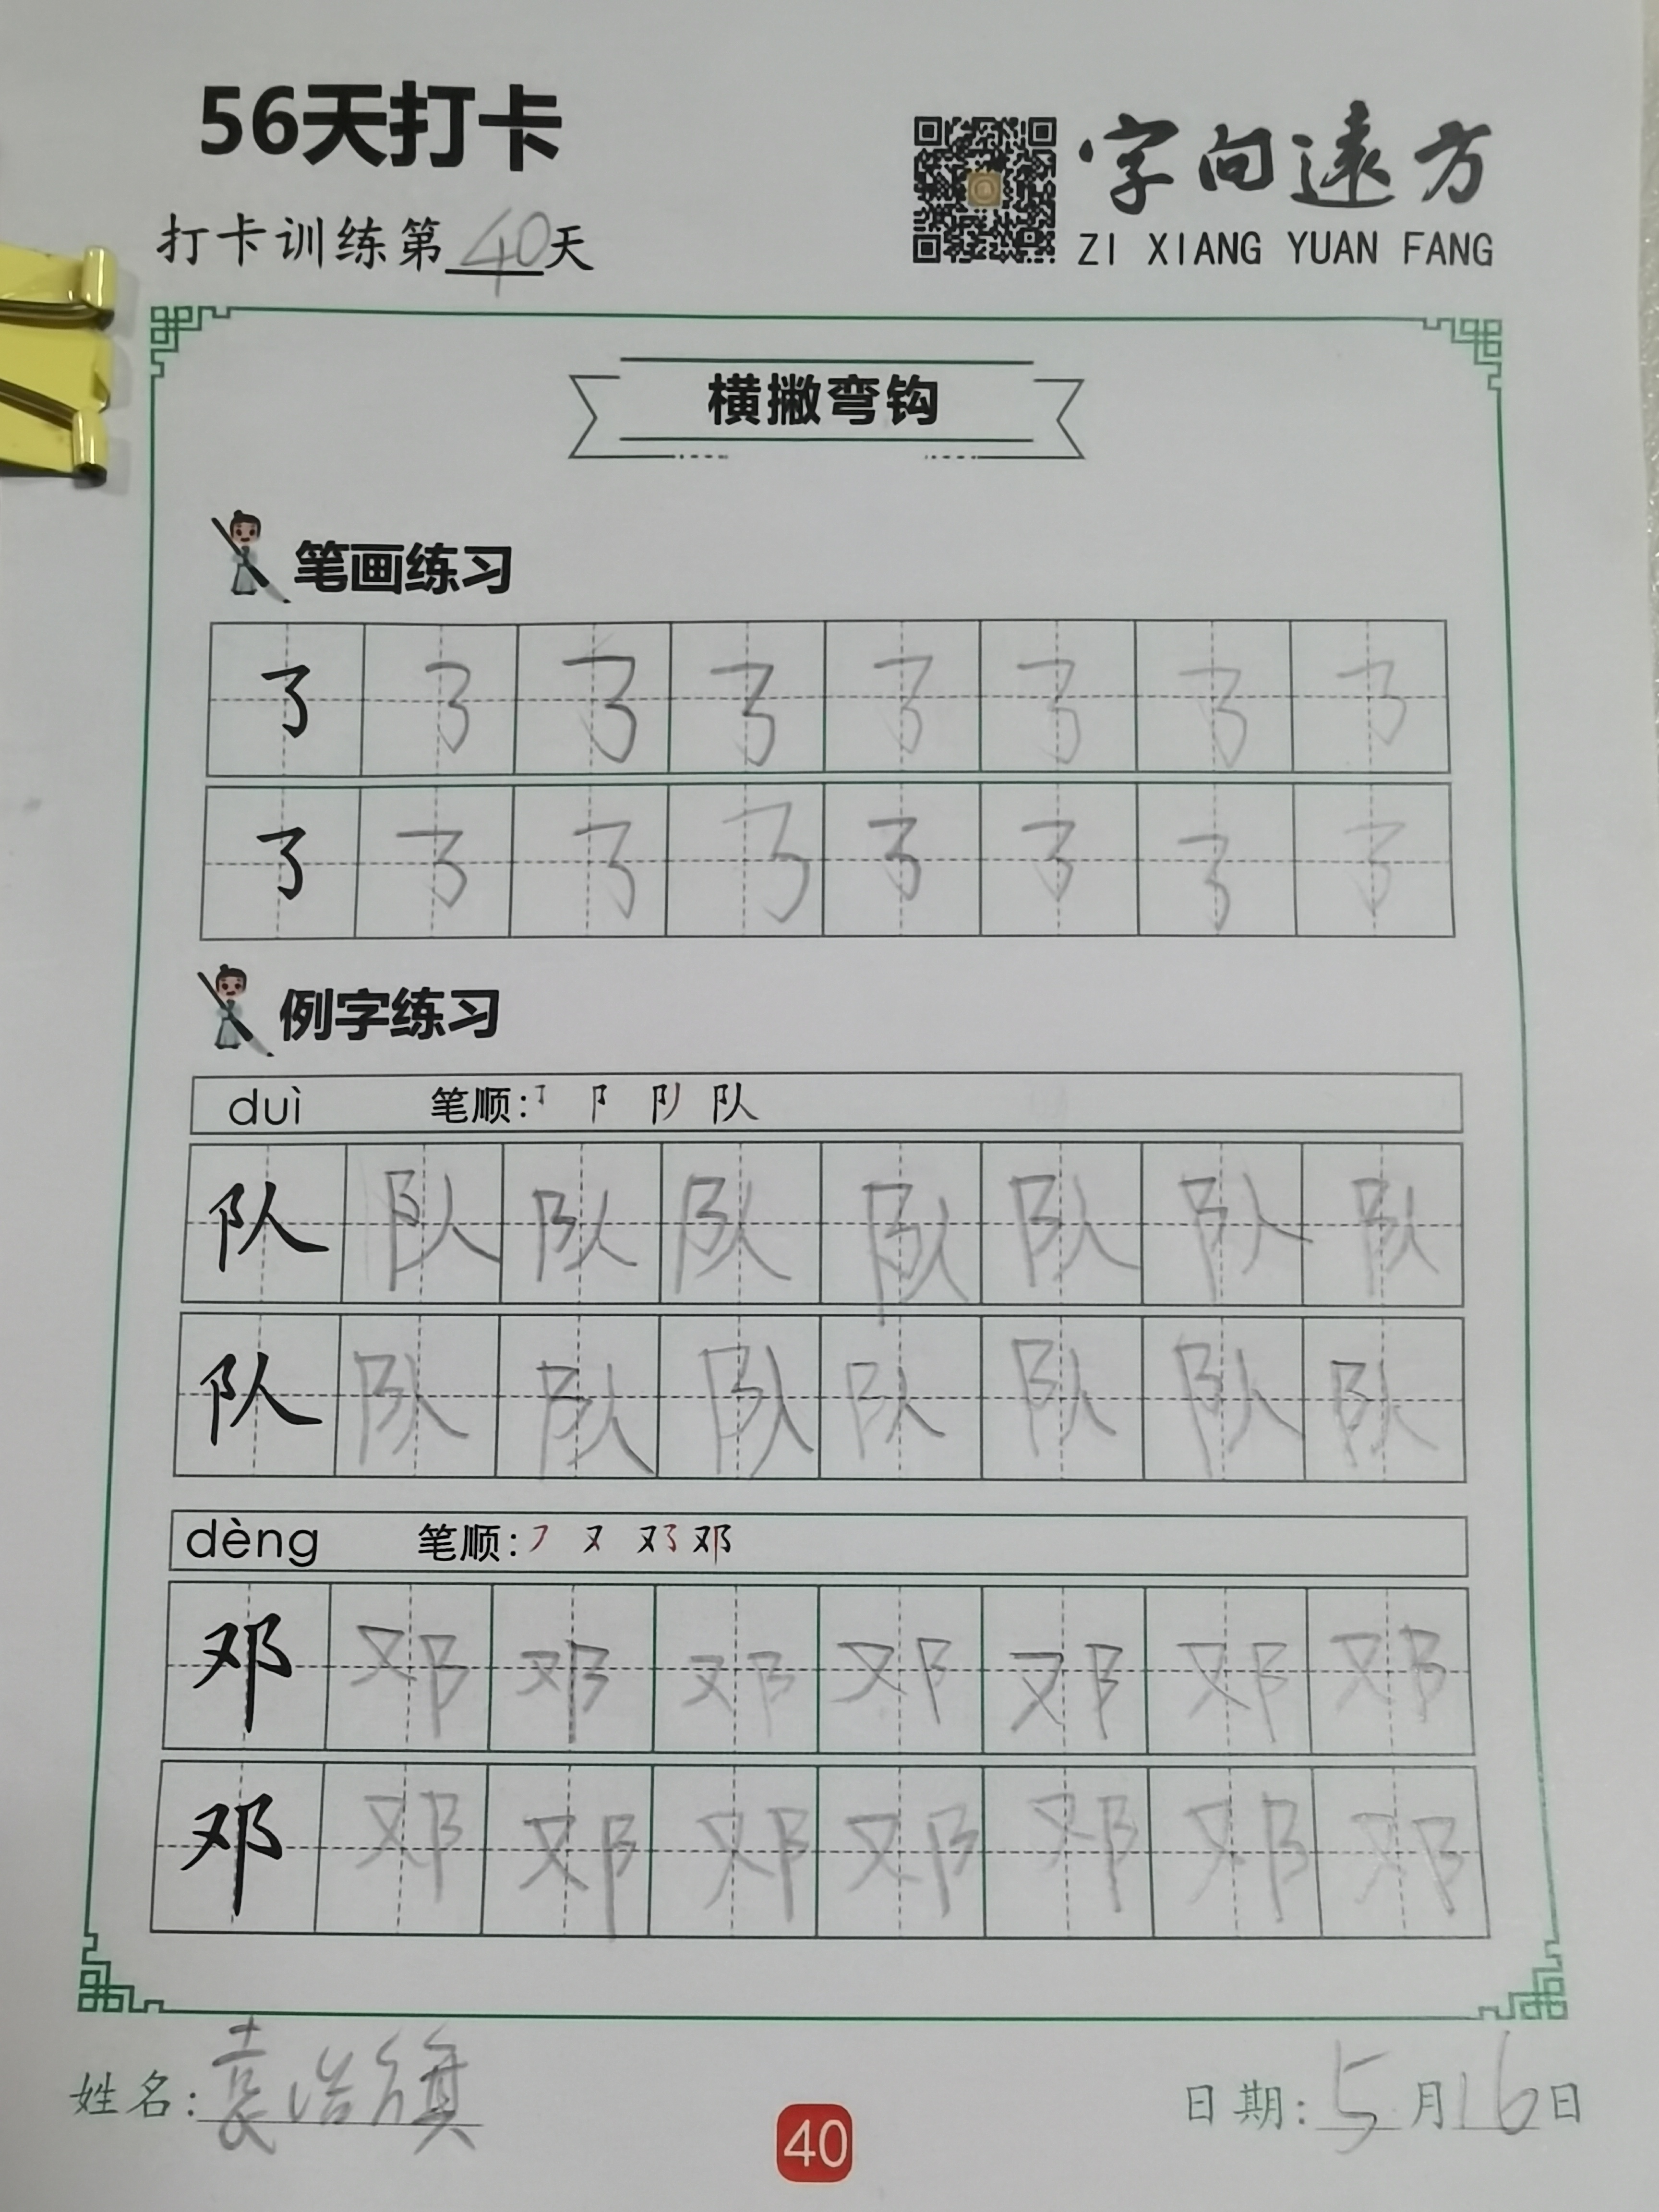 56天打卡
字向遠方
打卡训练第40天
ZI XIANG YUAN FANG
横撇弯钩
笔画练习
例字练习
duì 笔顺: 队
队 队 队 队 队 队 队 队
队 队 队 队 队 队 队 队
dèng 笔顺: 又 邓
邓 邓 邓 邓 邓 邓 邓 邓
邓 邓 邓 邓 邓 邓 邓 邓
姓名: 袁浩旗
日期: 5月16日
40